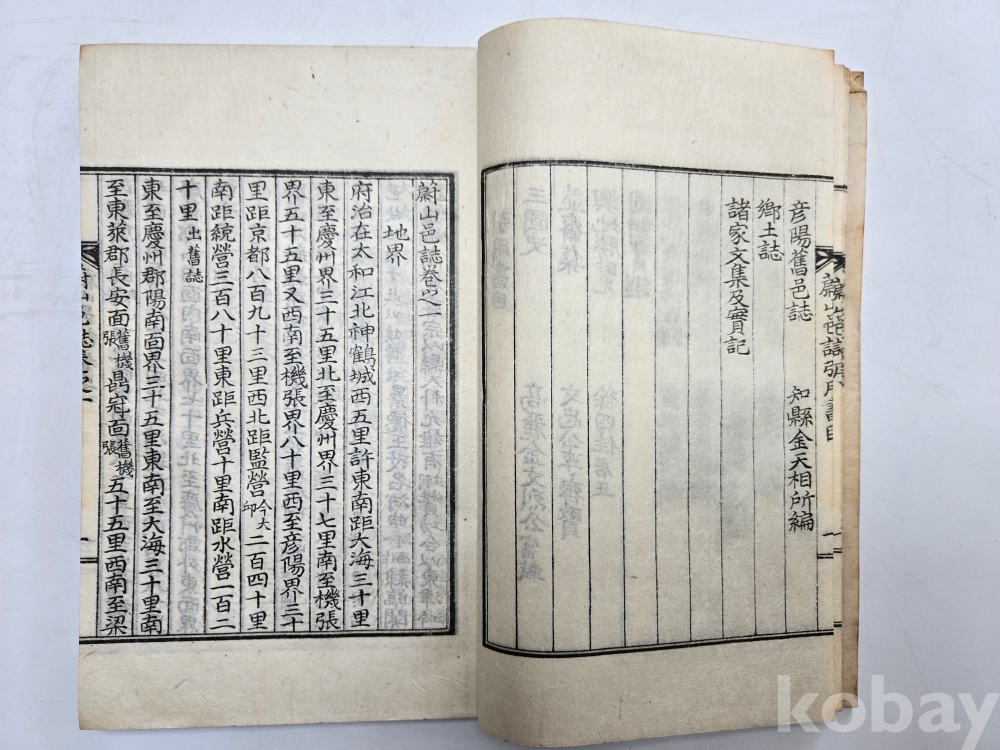 彦陽舊邑誌 知縣金天相所編
鄉土誌
諸家文集及實記
蔚山邑誌卷之一
地界
府治在太和江北神鶴城西五里許東南距大海三十里
東至慶州界三十五里北至慶州界三十七里南至機張
界五十五里又西南至機張界八十里西至彦陽界三十
里距京都八百九十三里西北距監營今大邱二百四十里
南距統營三百八十里東距兵營十里南距水營一百二
十里出舊誌
東至慶州郡陽南面界三十五里東南至大海三十里南
至東萊郡長安面舊機張鼎冠面舊機張五十五里西南至梁
kobay